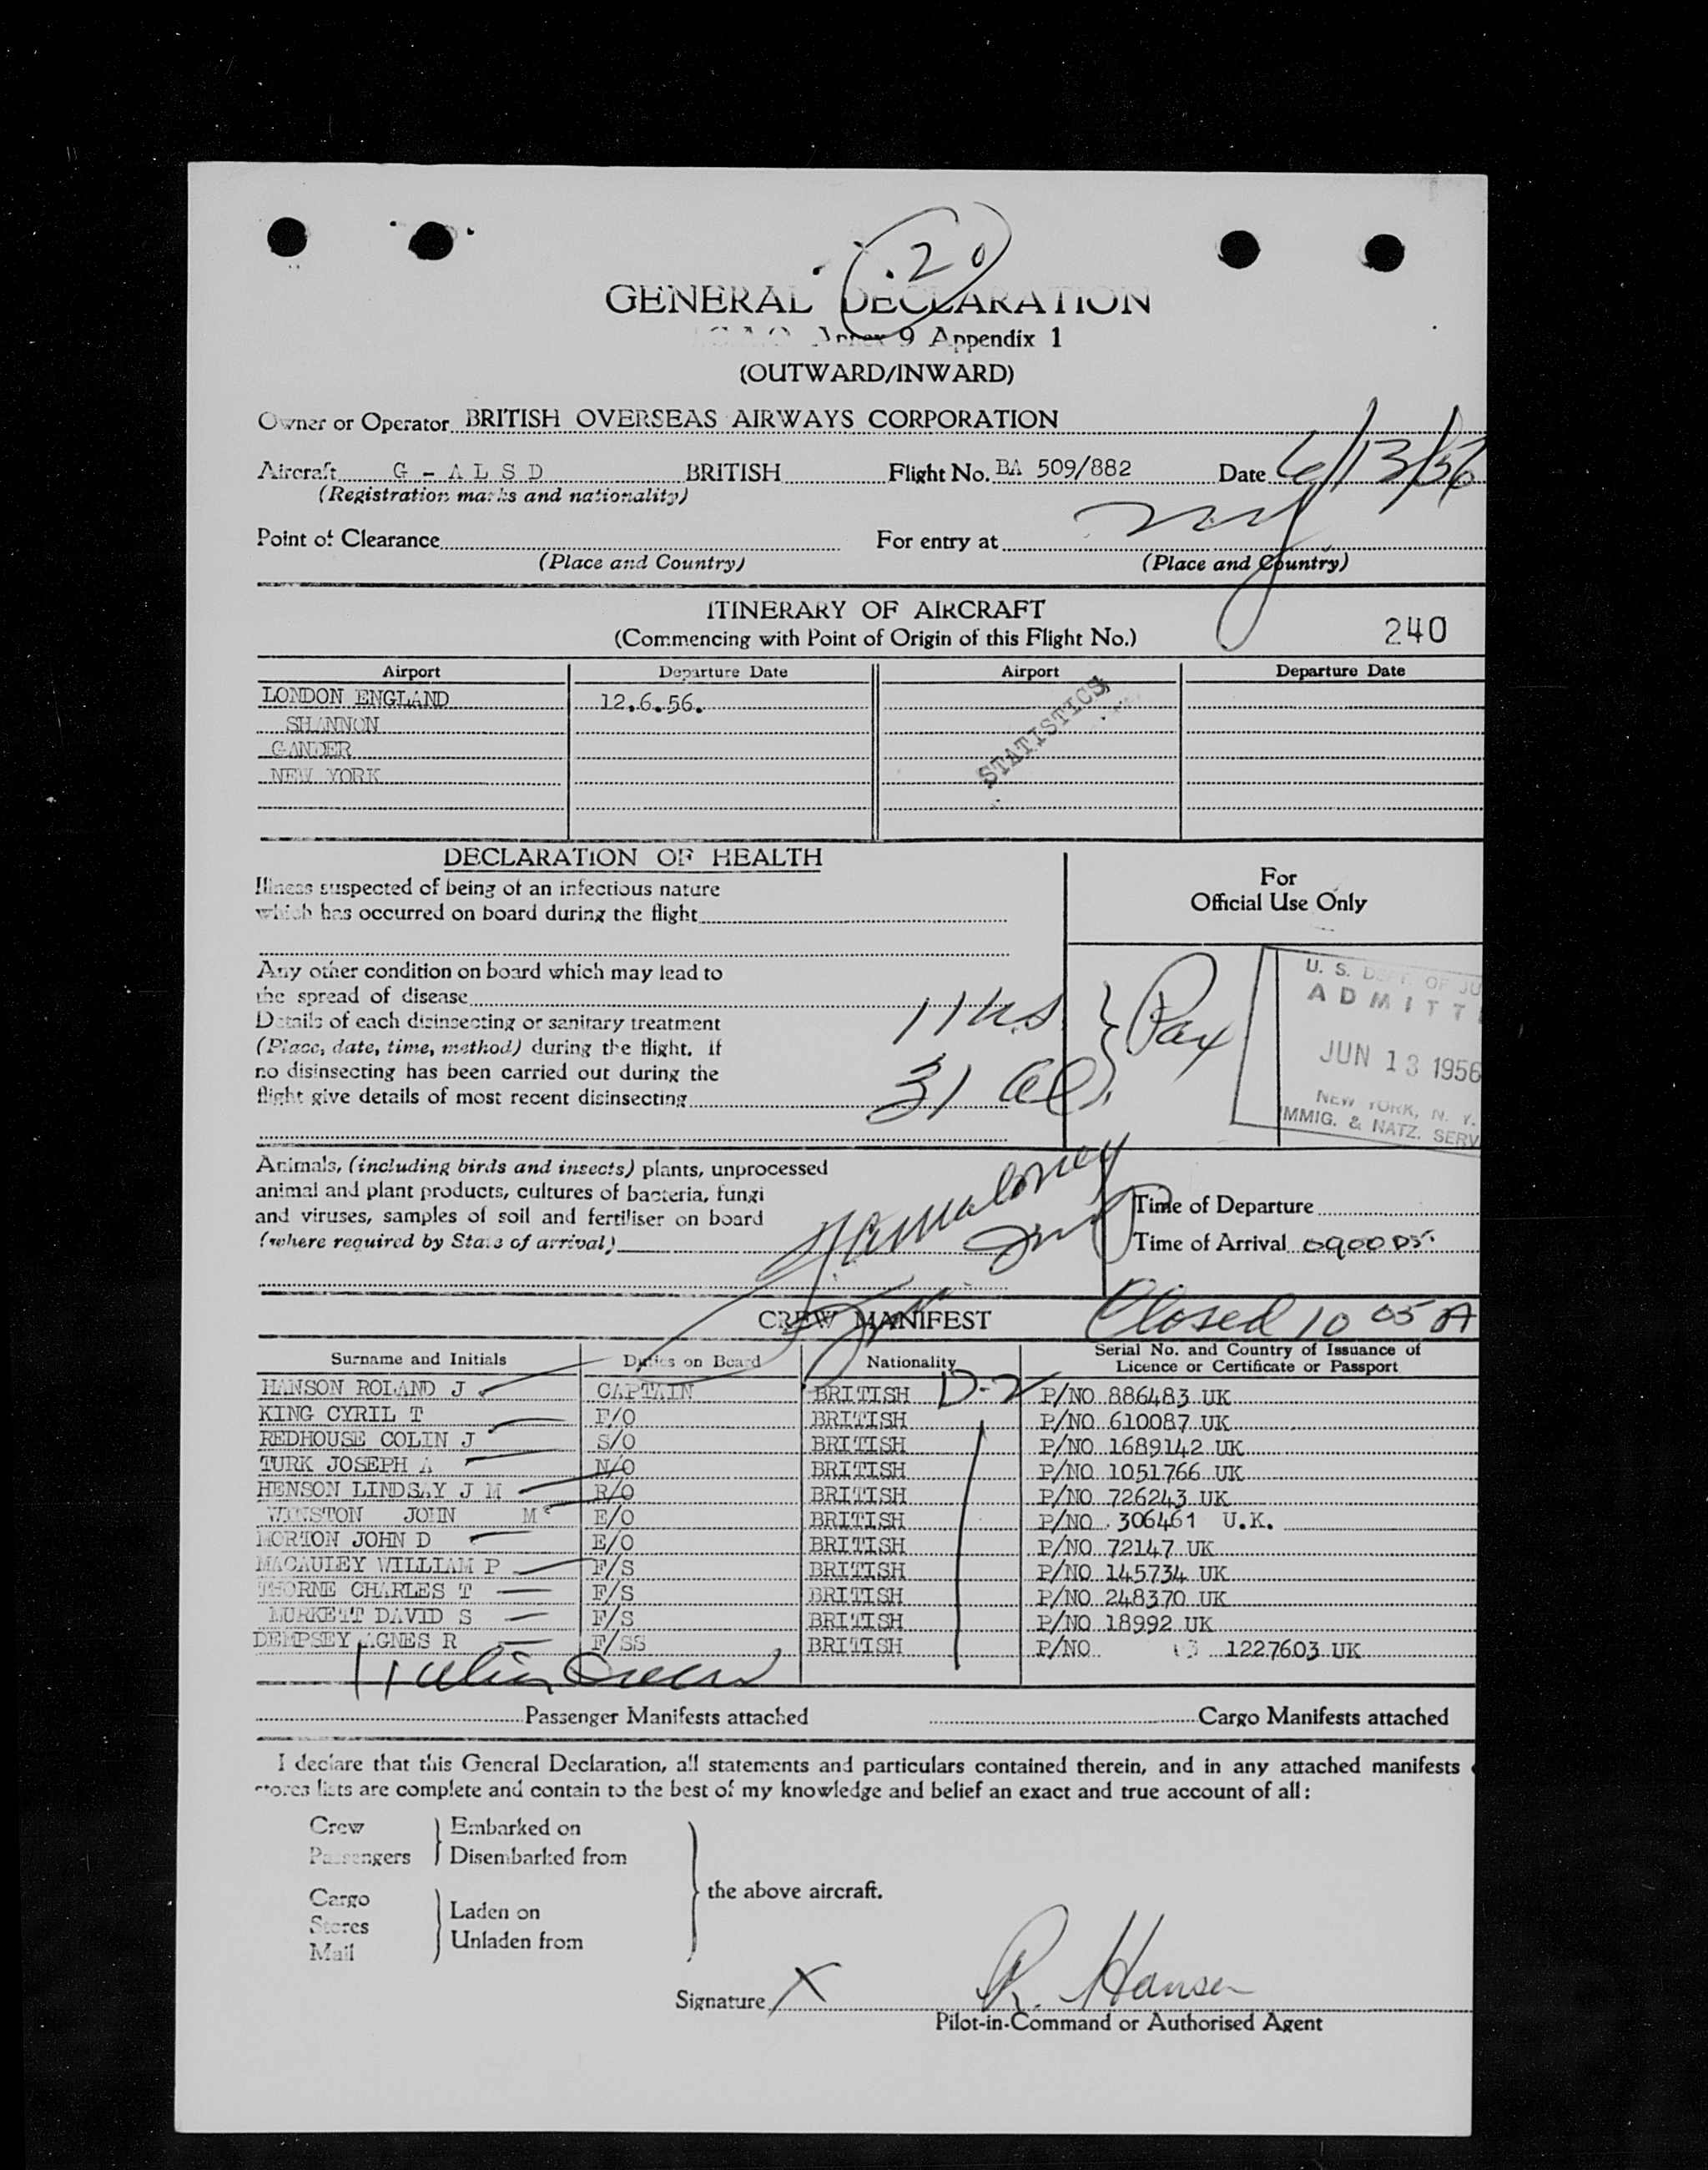 20
GENERAL DECLARATION
Annex 9 Appendix 1
(OUTWARD/INWARD)
Owner or Operator BRITISH OVERSEAS AIRWAYS CORPORATION
Aircraft G - A L S D BRITISH Flight No. BA 509/882 Date 6/13/56
(Registration marks and nationality)
Point of Clearance For entry at NY
(Place and Country) (Place and Country)
ITINERARY OF AIRCRAFT
(Commencing with Point of Origin of this Flight No.) 240
Airport Departure Date Airport Departure Date
LONDON ENGLAND 12.6.56.
SHANNON
GANDER
NEW YORK
STATISTICS
DECLARATION OF HEALTH
Illness suspected of being of an infectious nature
which has occurred on board during the flight
For
Official Use Only
Any other condition on board which may lead to
the spread of disease
Details of each disinsecting or sanitary treatment
(Place, date, time, method) during the flight. If
no disinsecting has been carried out during the
flight give details of most recent disinsecting
11 U.S.
31 al
Pax
U. S. DEPT. OF JU
ADMITT
JUN 13 1956
NEW YORK, N. Y.
IMMIG. & NATZ. SERV
Animals, (including birds and insects) plants, unprocessed
animal and plant products, cultures of bacteria, fungi
and viruses, samples of soil and fertiliser on board
(where required by State of arrival)
Time of Departure
Time of Arrival 0900
CREW MANIFEST Closed 10 05 A
Surname and Initials Duties on Board Nationality Serial No. and Country of Issuance of
Licence or Certificate or Passport
HANSON ROLAND J CAPTAIN BRITISH D-2 P/NO 886483 UK
KING CYRIL T F/O BRITISH P/NO 610087 UK
REDHOUSE COLIN J S/O BRITISH P/NO 1689142 UK
TURK JOSEPH A N/O BRITISH P/NO 1051766 UK
HENSON LINDSAY J M R/O BRITISH P/NO 726243 UK
WINSTON JOHN M E/O BRITISH P/NO 306461 U.K.
MORTON JOHN D E/O BRITISH P/NO 72147 UK
MACAULEY WILLIAM P F/S BRITISH P/NO 145734 UK
THORNE CHARLES T F/S BRITISH P/NO 248370 UK
MURKETT DAVID S F/S BRITISH P/NO 18992 UK
DEMPSEY AGNES R F/SS BRITISH P/NO 1227603 UK
11
Passenger Manifests attached Cargo Manifests attached
I declare that this General Declaration, all statements and particulars contained therein, and in any attached manifests
stores lists are complete and contain to the best of my knowledge and belief an exact and true account of all:
Crew Embarked on
Passengers Disembarked from
the above aircraft.
Cargo Laden on
Stores
Mail Unladen from
Signature X R. Hanson
Pilot-in-Command or Authorised Agent